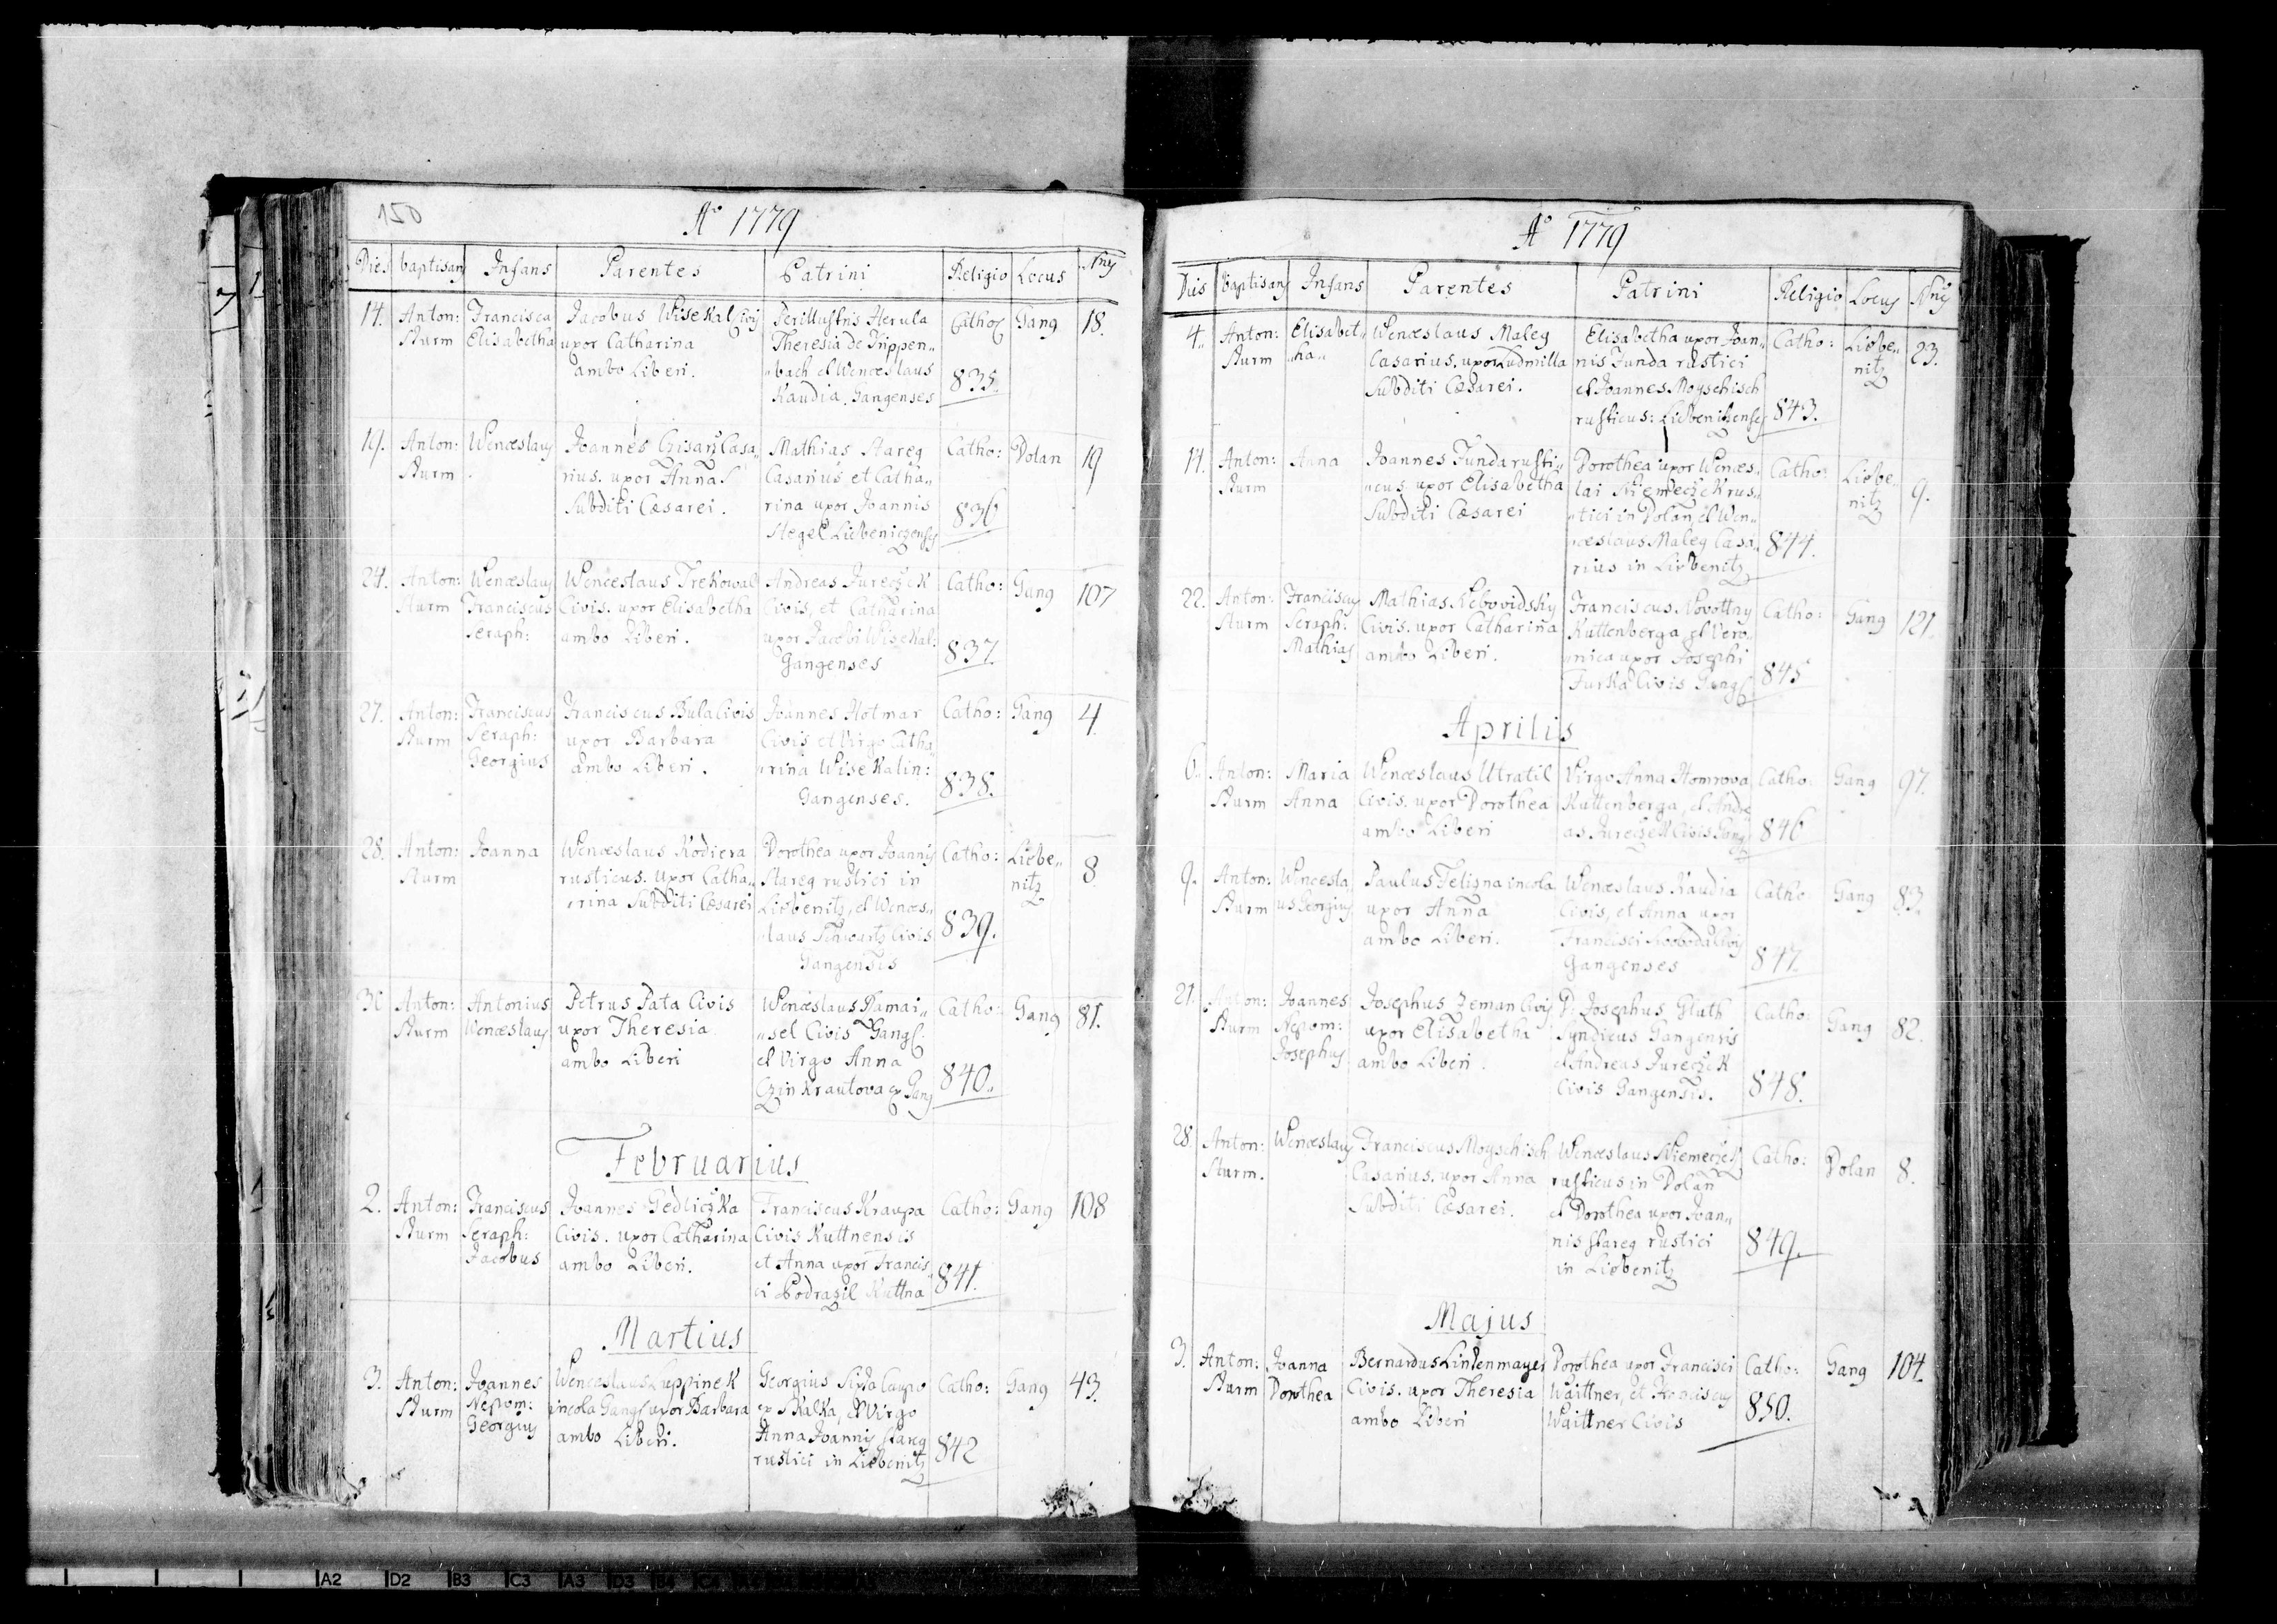 150
Aº 1779
Dies baptisans Infans Parentes Patrini Religio Locus Nrus
14. Anton: Francisca Jacobus Wisekal Civis Perillustris Herula Cathol Gang 18.
Sturm Elisabetha uxor Catharina Theresia de Trippen„
ambo Liberi. „bach et Wenceslaus 835.
Kaudia. Gangenses
19. Anton: Wenceslaus Joannes Casa„ Mathias Hareg Catho: Dolan 19
Sturm rius. uxor Anna Casarius et Catha„
Subditi Cæsarei. rina uxor Joannis 836
Stegel Liebeniczenses
24. Anton: Wenceslaus Wenceslaus Trekowal Andreas Jureczek Catho: Gang 107
Sturm Franciscus Civis. uxor Elisabetha Civis, et Catharina
Seraph: ambo Liberi. uxor Jacobi Wisekal: 837.
Gangenses
27. Anton: Franciscus Franciscus Bula Civis Joannes Hotmar Catho: Gang 4
Sturm Seraph: uxor Barbara Civis et Virgo Catha„
Georgius ambo Liberi. „rina Wisekalin: 838.
Gangenses.
28. Anton: Joanna Wenceslaus Kodiera Dorothea uxor Joannis Catho: Liebe„ 8
Sturm rusticus. uxor Catha„ Stareg rustici in nitz
„rina Subditi Cæsarei Liebenitz, et Wences„
„laus Schwartz Civis 839.
Gangensis
30 Anton: Antonius Petrus Pata Civis Wenceslaus Hamai„ Catho: Gang 81.
Sturm Wenceslaus uxor Theresia „sel Civis Gang:
ambo Liberi et Virgo Anna 840„
Czinkrautova ex Gang
Februarius
2. Anton: Franciscus Joannes Gedliczka Franciscus Kraupa Catho: Gang 108
Sturm Seraph: Civis. uxor Catharina Civis Kuttnensis
Jacobus ambo Liberi. et Anna uxor Francis 841.
ci Podrazil Kuttna
Martius
3. Anton: Joannes Wenceslaus Luppinek Georgius Sixta Caupo Catho: Gang 43.
Sturm Nepom: incola Gang: uxor Barbara ex Skalka, et Virgo
Georgius ambo Liberi. Anna Joannis Stareg 842
rustici in Liebenitz
Aº 1779
Dies baptisans Infans Parentes Patrini Religio Locus Nrus
4„ Anton: Elisabet„ Wenceslaus Maleg Elisabetha uxor Joan„ Catho: Liebe„ 23.
Sturm „ha„ Casarius. uxor Ludmilla nis Funda rustici nitz
Subditi Cæsarei. et Joannes Moyschisch
rusticus: Liebenitzenses 843.
14. Anton: Anna Joannes Funda rusti„ Dorothea uxor Wences„ Catho: Liebe„ 9.
Sturm „cus. uxor Elisabetha lai Niemeczek rus„ nitz
Subditi Cæsarei „tici in Dolan, et Wen„
„ceslaus Maleg Casa„ 844.
rius in Liebenitz
22. Anton: Franciscus Mathias Nebovidsky Franciscus Novottny Catho: Gang 121.
Sturm Seraph: Civis. uxor Catharina Kuttenberga et Vero„
Mathias ambo Liberi. „nica uxor Josephi 845
Furka Civis Gang:
Aprilis
6.. Anton: Maria Wenceslaus Utratil Virgo Anna Homrova Catho: Gang 97.
Sturm Anna Civis. uxor Dorothea Kuttenberga, et Andre„
ambo Liberi as Jureczek Civis Gang: 846
9. Anton: Wencesla„ Paulus Felizna incola Wenceslaus Kaudia Catho: Gang 83.
Sturm us Georgius uxor Anna Civis, et Anna uxor
ambo Liberi. Francisci Swoboda Civis
Gangenses 847.
21. Anton: Joannes Josephus Zeman Civis D: Josephus Gluth Catho: Gang 82.
Sturm Nepom: uxor Elisabetha Syndicus Gangensis
Josephus ambo Liberi. et Andreas Jureczek
Civis Gangensis. 848.
28. Anton: Wenceslaus Franciscus Moyschisch Wenceslaus Niemeczek Catho: Dolan 8.
Sturm. Casarius. uxor Anna rusticus in Dolan
Subditi Cæsarei. et Dorothea uxor Joan„
nis Stareg rustici 849.
in Liebenitz
Majus
3. Anton: Joanna Bernardus Lindenmayer Dorothea uxor Francisci Catho: Gang 104.
Sturm Dorothea Civis. uxor Theresia Waittner, et Franciscus
ambo Liberi Waittner Civis 850.
A2 D2 B3 C3 A3 D3